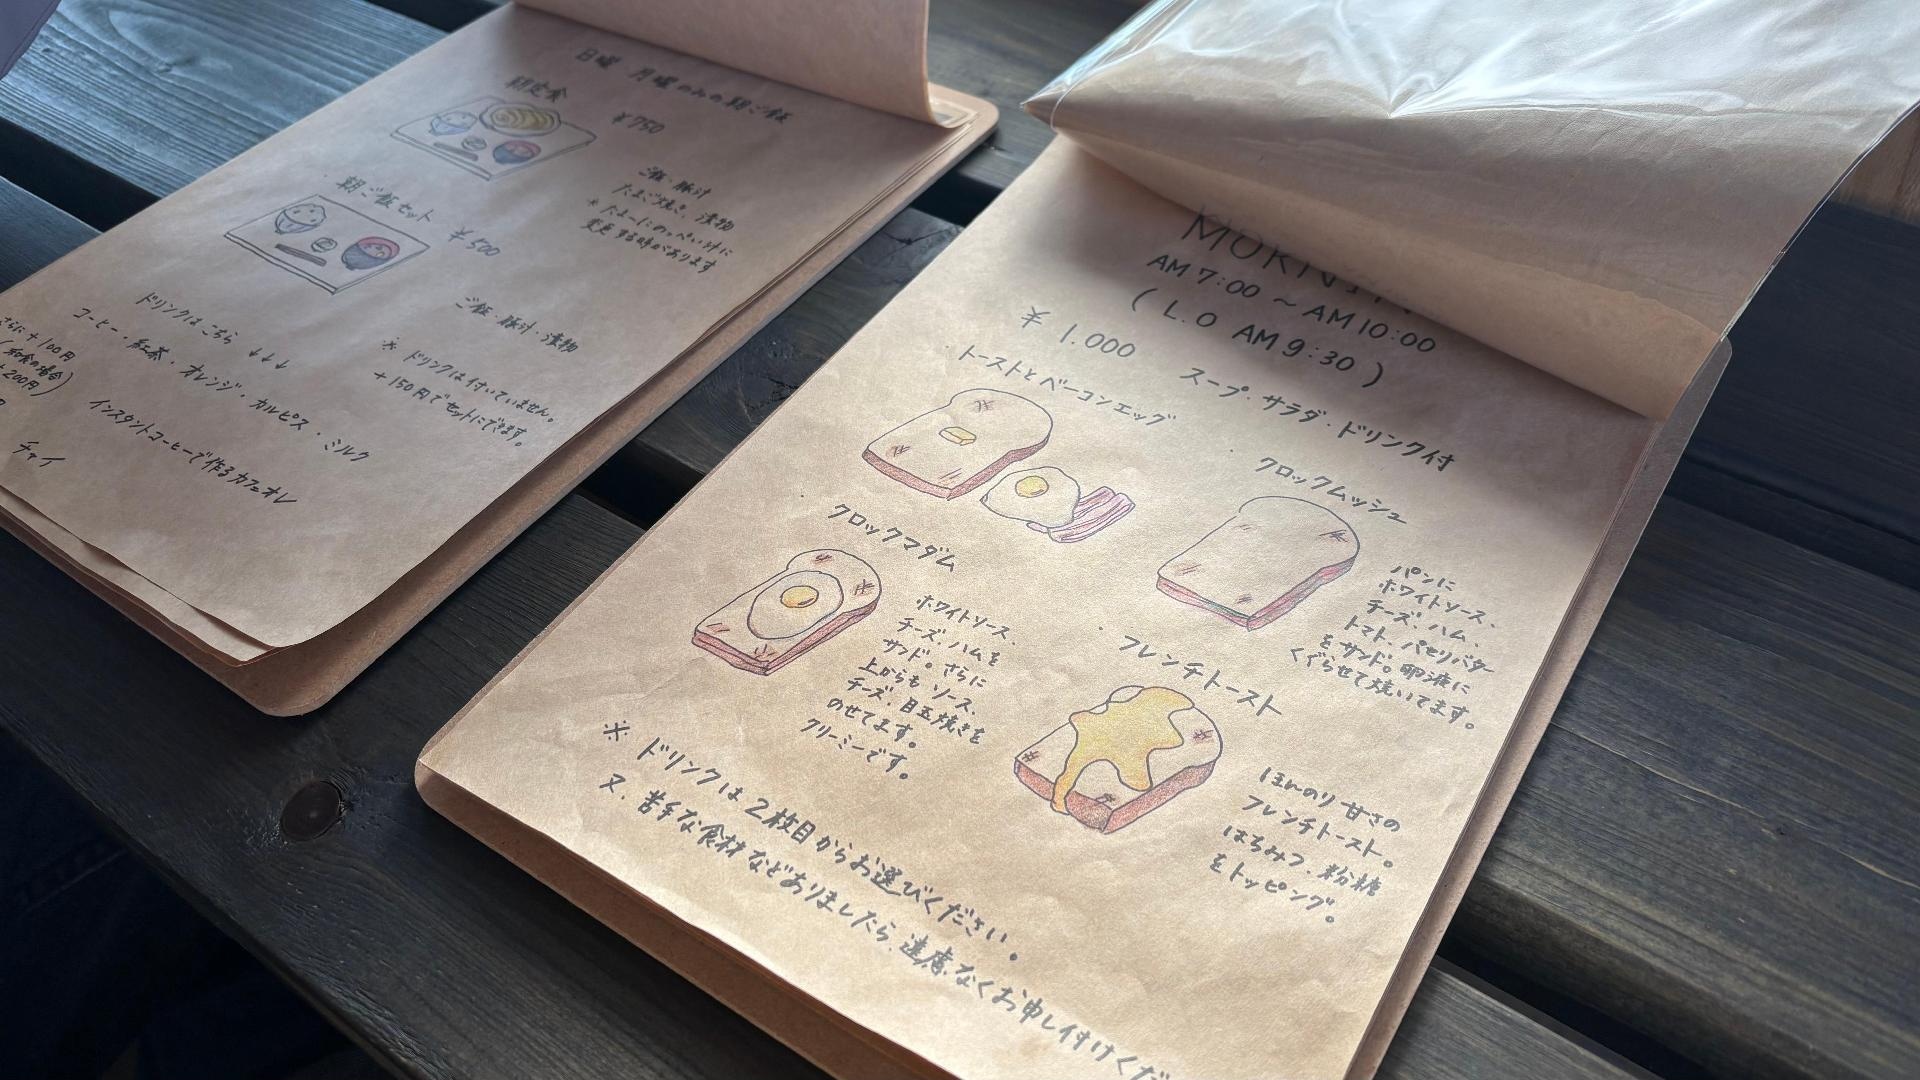 日曜 月曜のみの朝ご飯
朝定食
¥750
ご飯・豚汁
たまご焼き、漬物
※たまーにのっぺい汁に
変更する時があります
・朝ご飯セット
¥500
ご飯・豚汁・漬物
※ドリンクは付いていません。
+150円でセットにできます。
ドリンクはこちら ↓↓↓
コーヒー・紅茶・オレンジ・カルピス・ミルク
さらに+100円
(和食の場合
+200円)
インスタントコーヒーで作るカフェオレ
チャイ
MORNIN
AM 7:00 ~ AM 10:00
( L.O AM 9:30 )
¥ 1.000 スープ・サラダ・ドリンク付
・トーストとベーコンエッグ
・クロックムッシュ
パンに
ホワイトソース、
チーズ、ハム、
トマト、パセリバター
をサンド。卵液に
くぐらせて焼いてます。
・クロックマダム
ホワイトソース、
チーズ、ハムを
サンド。さらに
上からも ソース、
チーズ、目玉焼きを
のせてます。
クリーミーです。
・フレンチトースト
ほんのり甘さの
フレンチトースト。
はちみつ、粉糖
をトッピング。
※ ドリンクは2枚目からお選びください。
又、苦手な食材などありましたら、遠慮なくお申し付けくだ